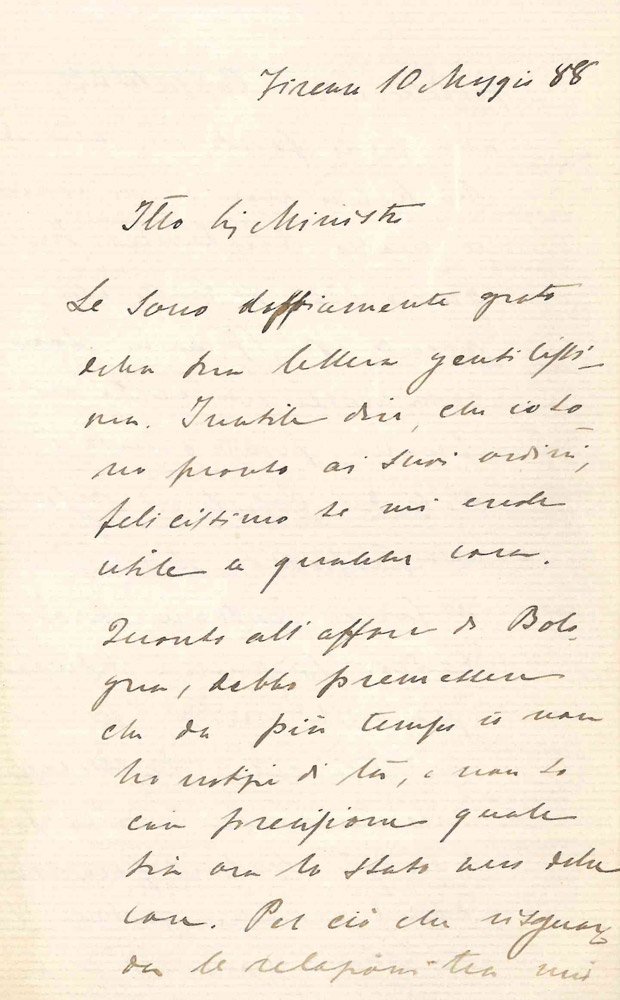 Firenze 10 Maggio 88
Illo Sig Ministro
Le sono doppiamente grato
della sua lettera gentilissi-
ma. Inutile dire, che io so
no pronto ai suoi ordini,
felicissimo se mi crede
utile a qualche cosa.
Quanto all'affare di Bolo-
gna, debbo premettere
che da più tempo io non
ho notizie di là, e non so
con precisione quale
sia ora lo stato vero delle
cose. Per ciò che risguar
da le relazioni tra mio